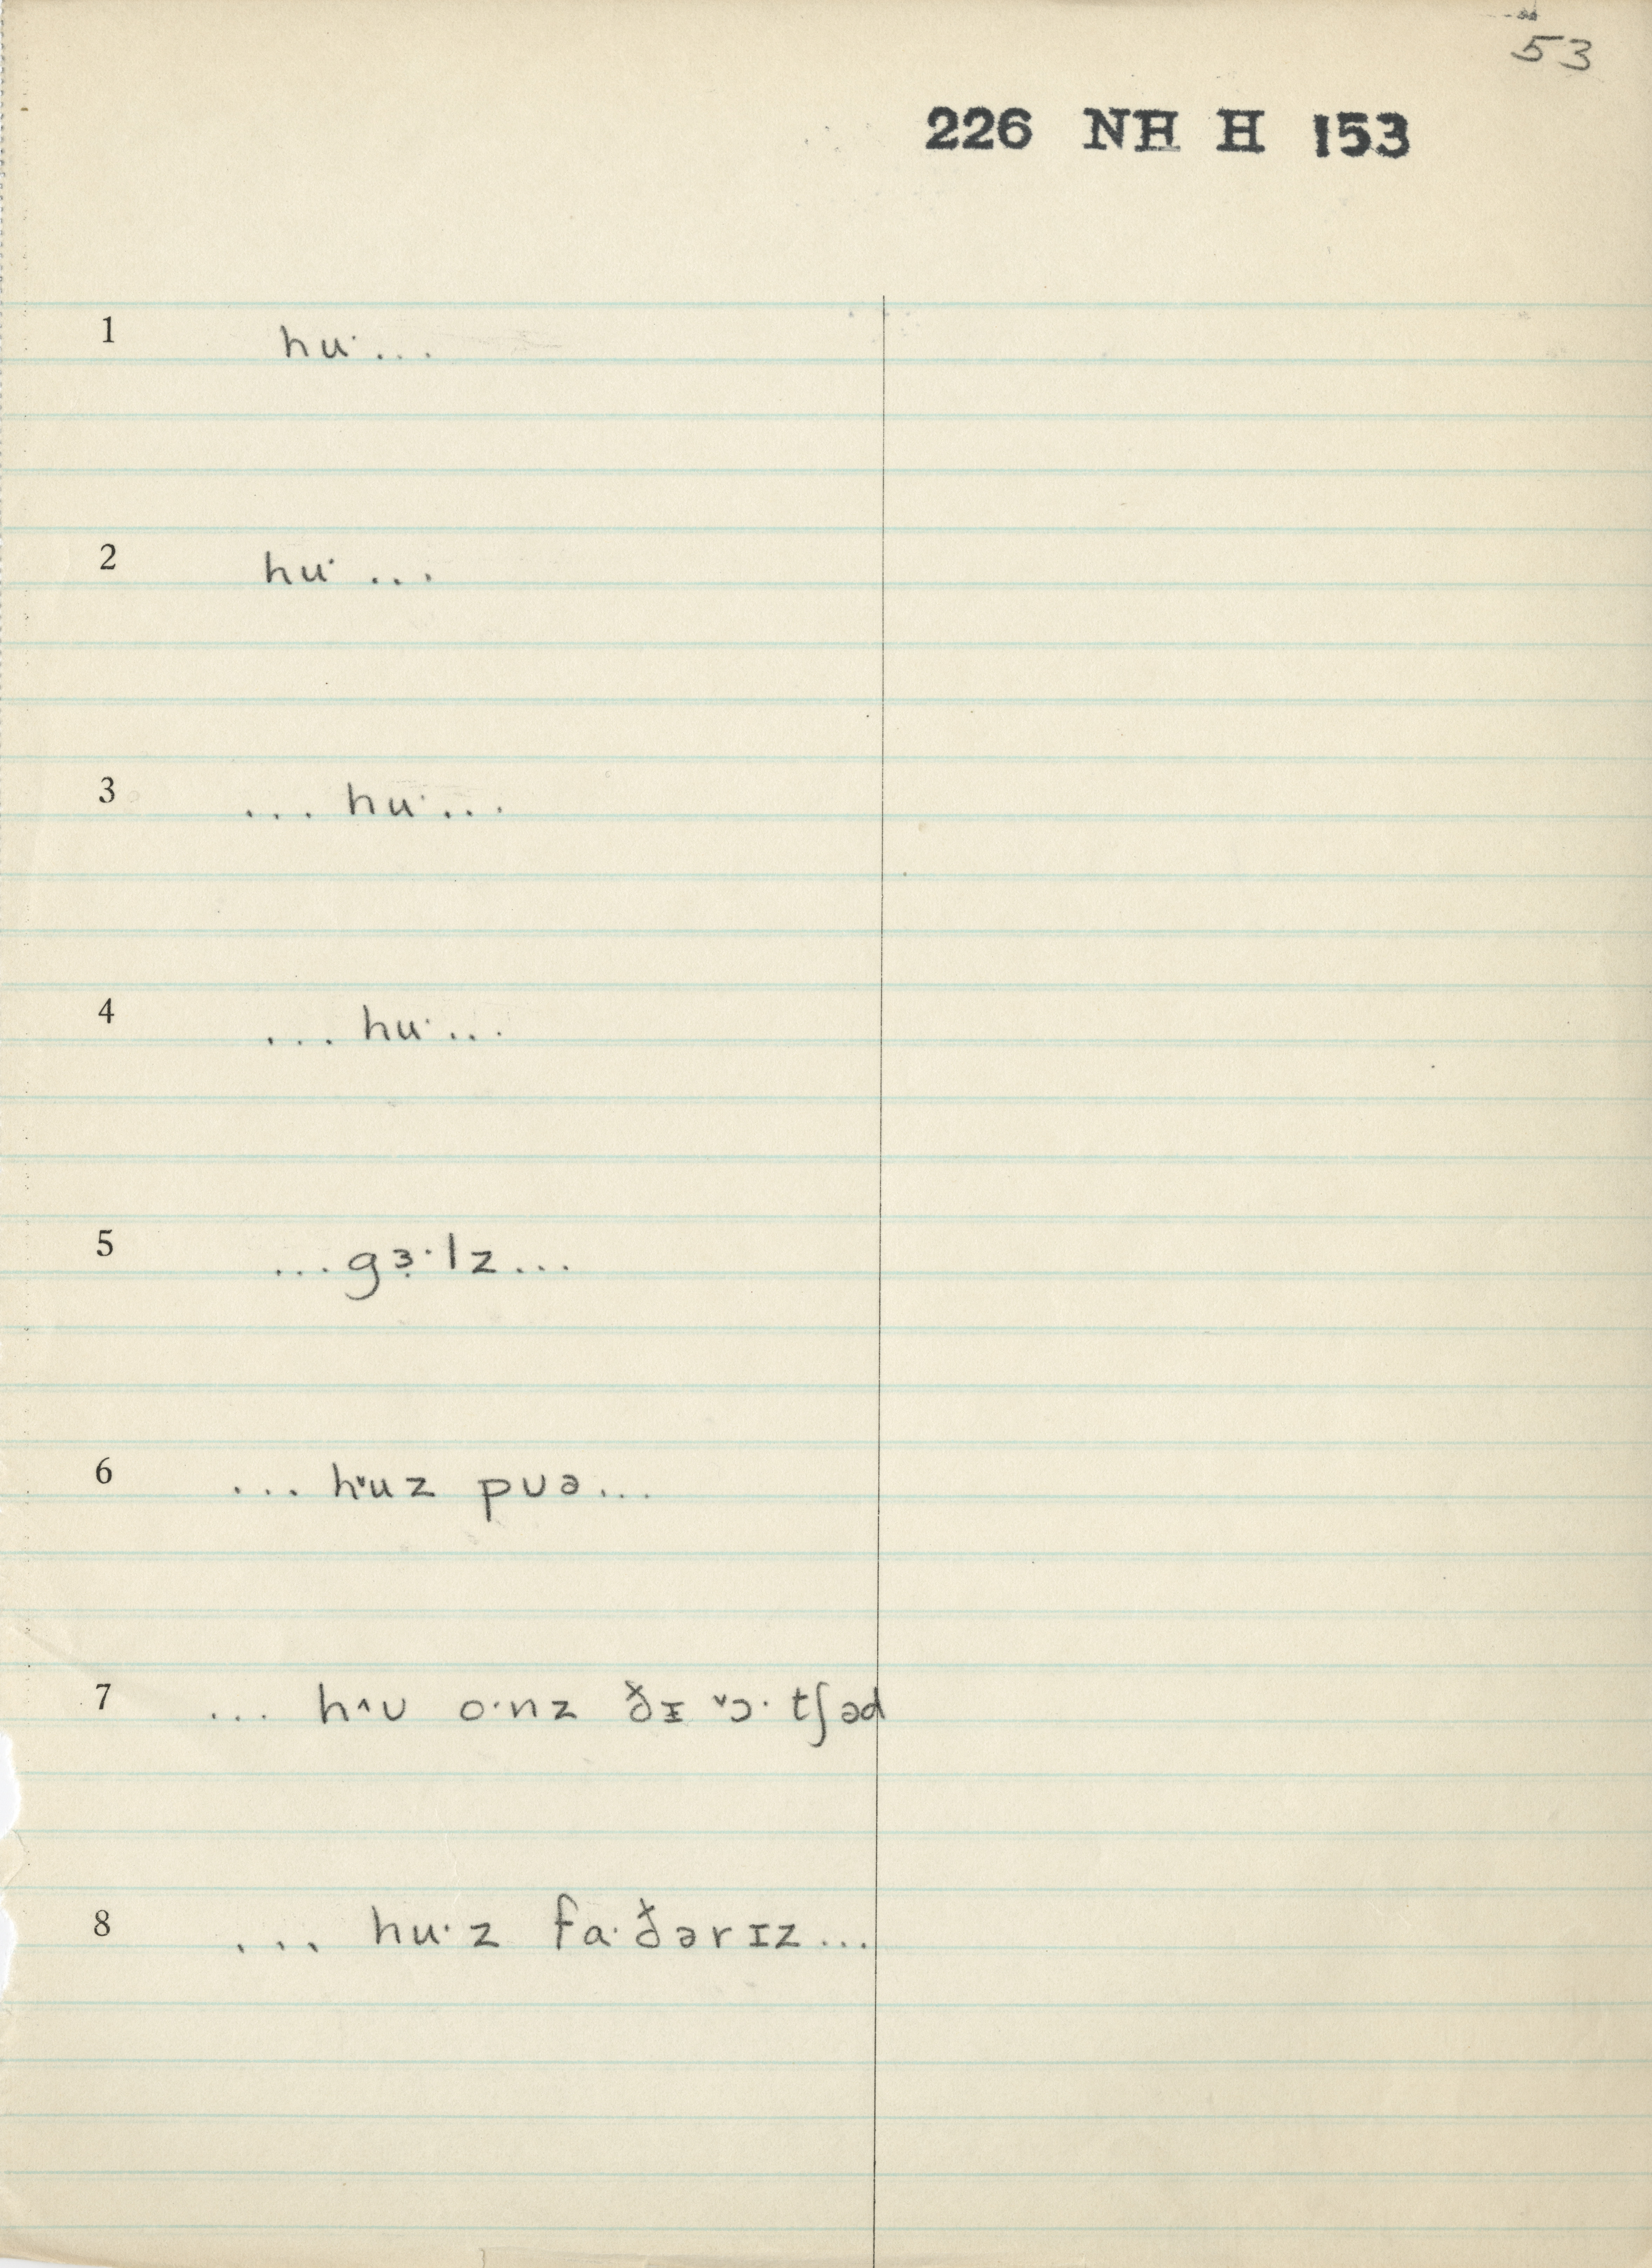 53
226 NH H 153
1 hu· ...
2 hu· ...
3 ... hu· ...
4 ... hu· ...
5 ...gɜ̣·lz...
6 ... hᵛuz pʊə...
7 ... h^ʊ o·nz ðɪ ᵛɔ· tʃəd
8 ... hu·z fa·ðərɪz...